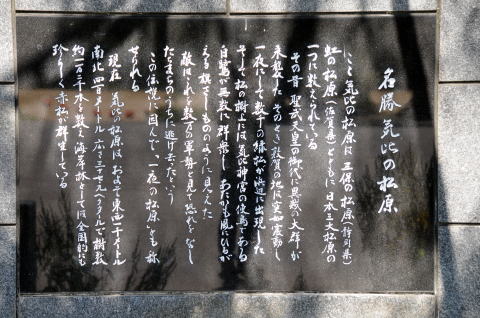 名勝 気比の松原
ここ気比の松原は 三保の松原(静岡県)
虹の松原(佐賀県)とともに 日本三大松原の
一つに数えられている
その昔 聖武天皇の御代に異賊の大群が
来襲した そのとき敦賀の地は突如震動し
一夜にして数千の緑松が浜辺に出現した
そして松の樹上には気比神宮の使鳥である
白鷺が無数に群衆し あたかも風にひるが
える旗さしもののように見えた
敵はこれを数万の軍勢と見て恐れをなし
たちまちのうちに逃げ去ったという
この伝説に因んで、"一夜の松原"とも称
せられる
現在 気比の松原は およそ東西一千メートル
南北四百メートル 広さ三十七万ヘクタールで 樹数
約一万七千本を数え 海岸林としては全国的にも
珍らしく 赤松が群生している